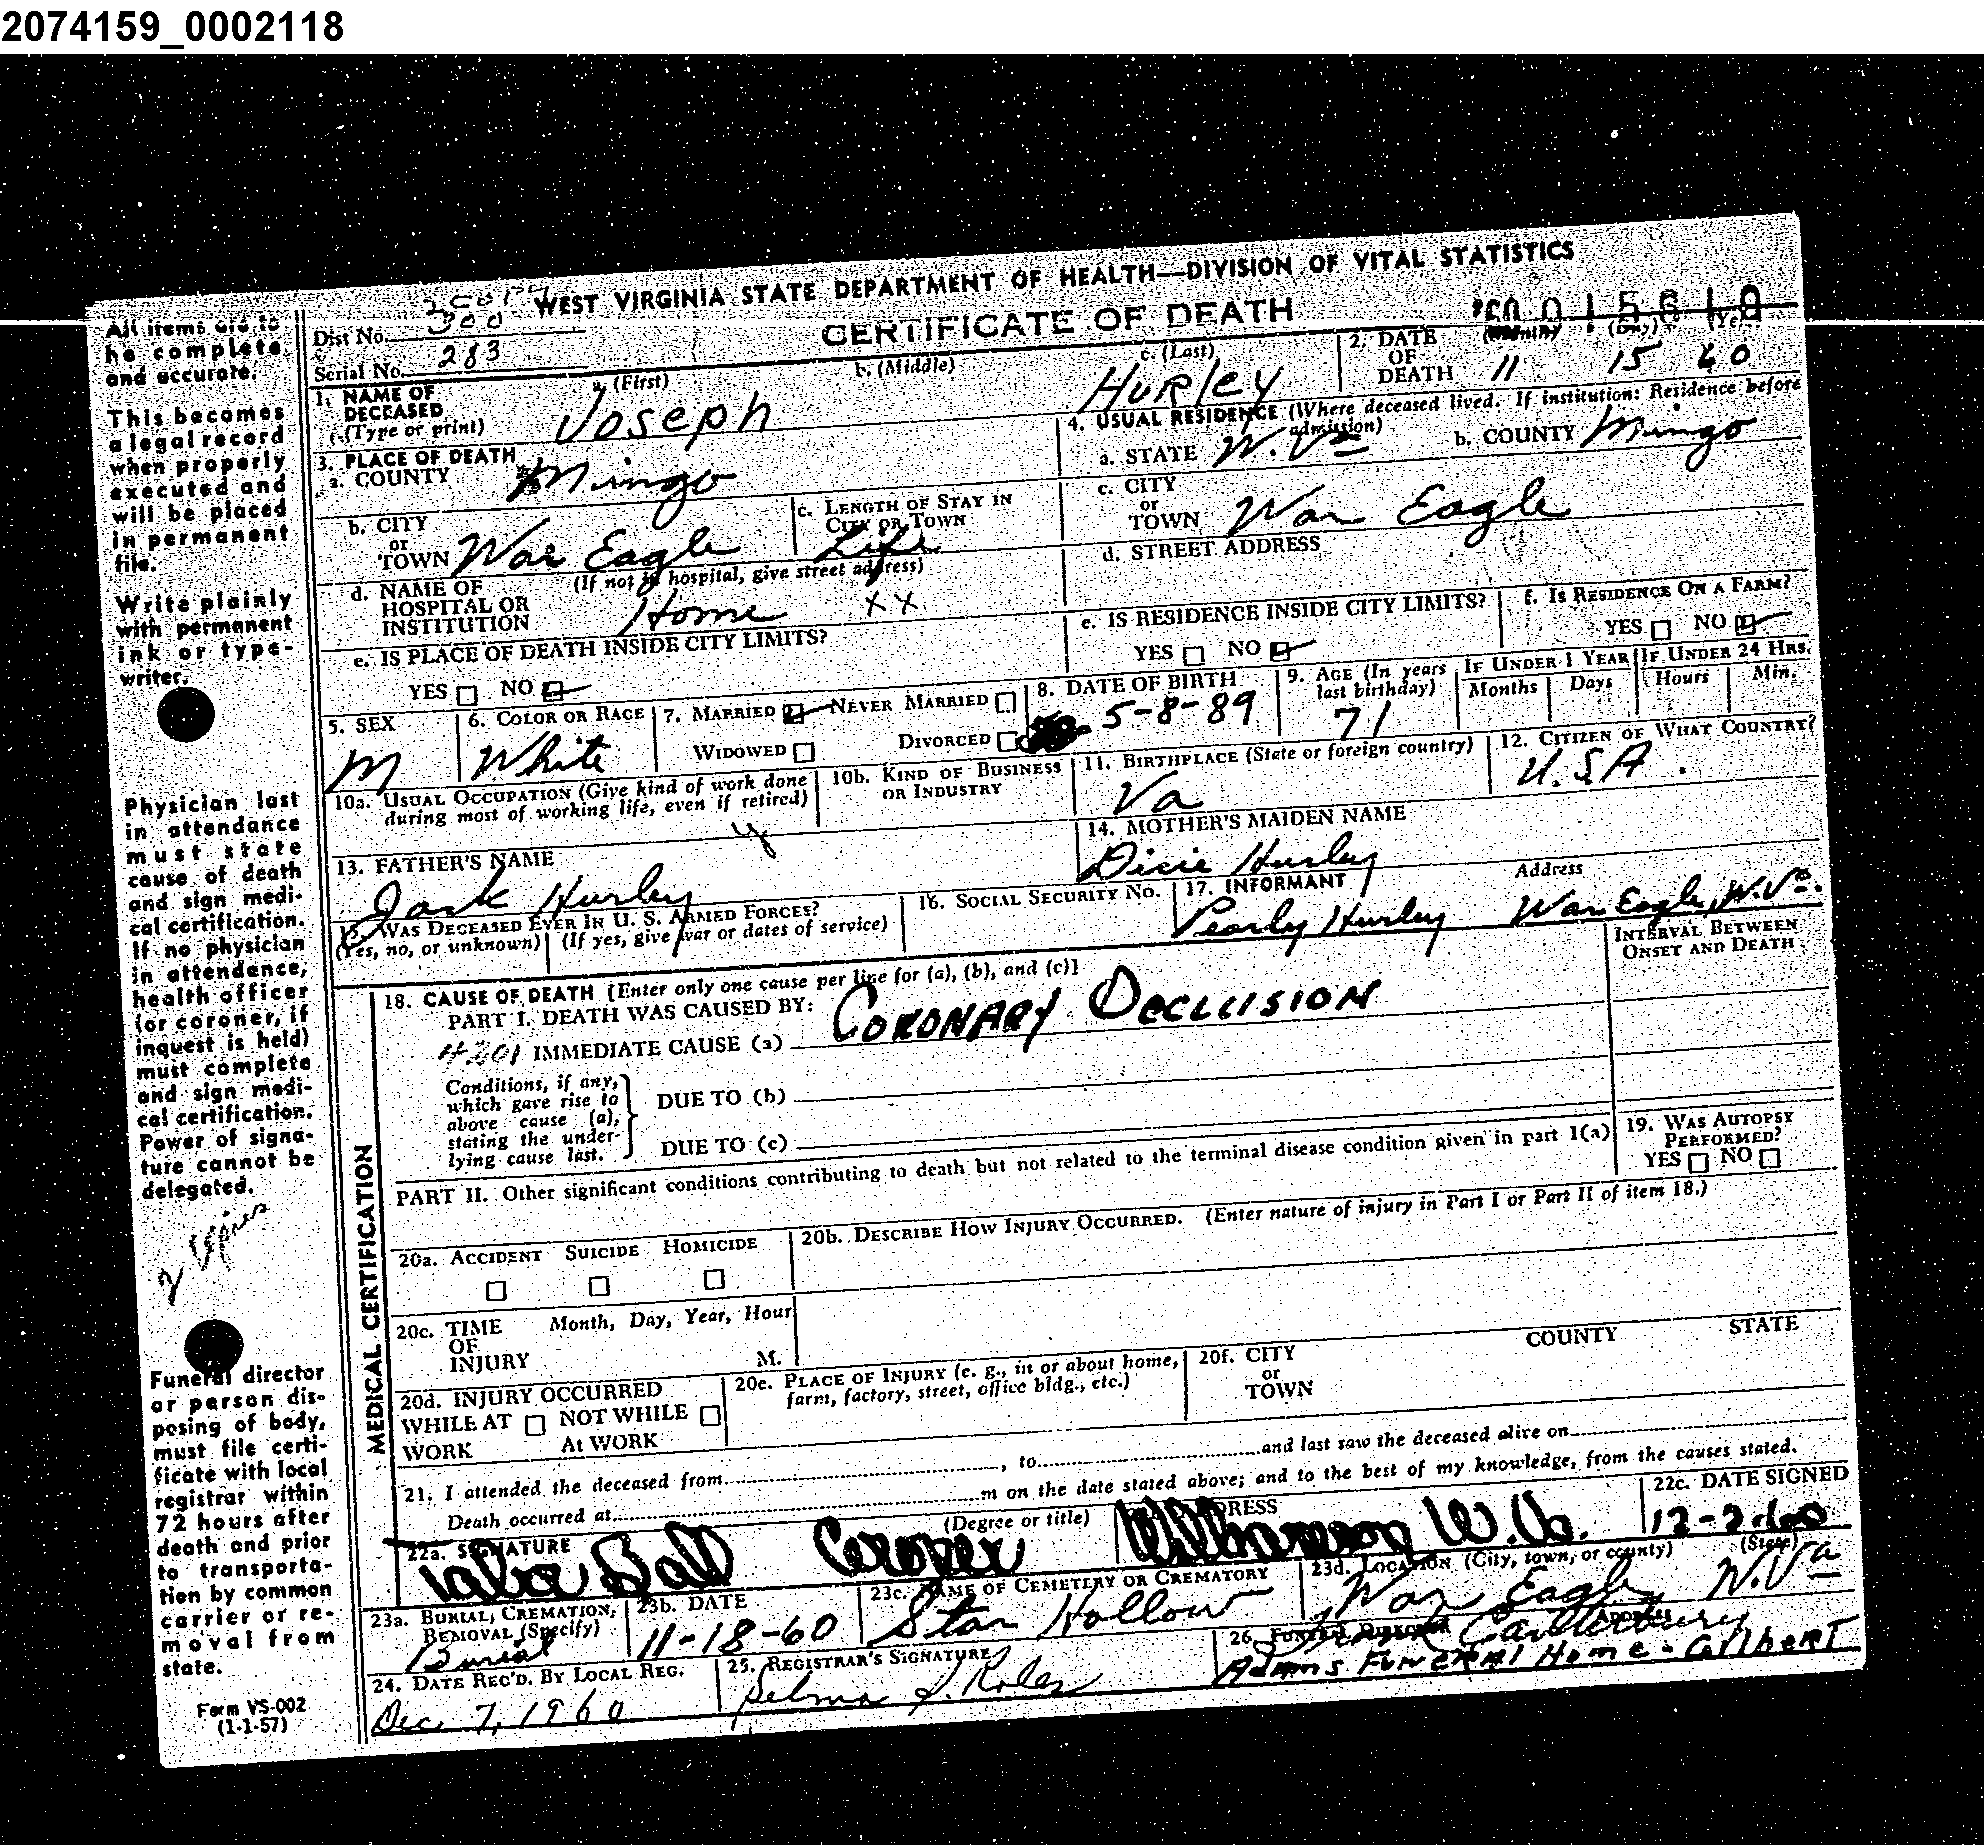 2074159_0002118
WEST VIRGINIA STATE DEPARTMENT OF HEALTH—DIVISION OF VITAL STATISTICS
CERTIFICATE OF DEATH
Dist No. 300
Serial No. 283
1. NAME OF DECEASED (Type or print) a. (First) Joseph b. (Middle) c. (Last) Hurley
2. DATE OF DEATH (Month) 11 (Day) 15 (Year) 60
3. PLACE OF DEATH
a. COUNTY Mingo
b. CITY or TOWN War Eagle
c. LENGTH OF STAY IN CITY OR TOWN Life
d. NAME OF HOSPITAL OR INSTITUTION (If not in hospital, give street address) Home XX
e. IS PLACE OF DEATH INSIDE CITY LIMITS?
YES NO
4. USUAL RESIDENCE (Where deceased lived. If institution: Residence before admission)
a. STATE W. Va b. COUNTY Mingo
c. CITY or TOWN War Eagle
d. STREET ADDRESS
e. IS RESIDENCE INSIDE CITY LIMITS?
YES NO
f. IS RESIDENCE ON A FARM?
YES NO
5. SEX M
6. COLOR OR RACE White
7. MARRIED NEVER MARRIED
WIDOWED DIVORCED
8. DATE OF BIRTH 5-8-89
9. AGE (In years last birthday) 71
IF UNDER 1 YEAR Months Days
IF UNDER 24 HRS. Hours Min.
10a. USUAL OCCUPATION (Give kind of work done during most of working life, even if retired)
10b. KIND OF BUSINESS OR INDUSTRY
11. BIRTHPLACE (State or foreign country) Va
12. CITIZEN OF WHAT COUNTRY? U.S.A.
13. FATHER'S NAME Jack Hurley
14. MOTHER'S MAIDEN NAME Dicie Hurley
15. WAS DECEASED EVER IN U. S. ARMED FORCES?
(Yes, no, or unknown) (If yes, give war or dates of service)
16. SOCIAL SECURITY NO.
17. INFORMANT Pearly Hurley Address War Eagle, W. Va.
MEDICAL CERTIFICATION
18. CAUSE OF DEATH [Enter only one cause per line for (a), (b), and (c)]
INTERVAL BETWEEN ONSET AND DEATH
PART I. DEATH WAS CAUSED BY:
4201 IMMEDIATE CAUSE (a) CORONARY OCCLUSION
Conditions, if any, which gave rise to above cause (a), stating the underlying cause last.
DUE TO (b)
DUE TO (c)
PART II. Other significant conditions contributing to death but not related to the terminal disease condition given in part I(a)
19. WAS AUTOPSY PERFORMED?
YES NO
20a. ACCIDENT SUICIDE HOMICIDE
20b. DESCRIBE HOW INJURY OCCURRED. (Enter nature of injury in Part I or Part II of item 18.)
20c. TIME OF INJURY Month, Day, Year, Hour M.
20d. INJURY OCCURRED
WHILE AT WORK NOT WHILE At WORK
20e. PLACE OF INJURY (e. g., in or about home, farm, factory, street, office bldg., etc.)
20f. CITY or TOWN COUNTY STATE
21. I attended the deceased from, to and last saw the deceased alive on
Death occurred at m on the date stated above; and to the best of my knowledge, from the causes stated.
22a. SIGNATURE Ball (Degree or title) Coroner
ADDRESS Williamson W. Va.
22c. DATE SIGNED 12-2-60
23a. BURIAL, CREMATION, REMOVAL (Specify) Burial
23b. DATE 11-18-60
23c. NAME OF CEMETERY OR CREMATORY Star Hollow
23d. LOCATION (City, town, or county) (State) War Eagle, W. Va
24. DATE REC'D. BY LOCAL REG. Dec. 7, 1960
25. REGISTRAR'S SIGNATURE Selma
26. FUNERAL DIRECTOR ADDRESS Canterbury
ADAMS FUNERAL HOME - GILBERT
All items are to be complete and accurate.
This becomes a legal record when properly executed and will be placed in permanent file.
Write plainly with permanent ink or typewriter.
Physician last in attendance must state cause of death and sign medical certification. If no physician in attendance, health officer (or coroner, if inquest is held) must complete and sign medical certification. Power of signature cannot be delegated.
Funeral director or person disposing of body, must file certificate with local registrar within 72 hours after death and prior to transportation by common carrier or removal from state.
Form VS-002
(1-1-57)